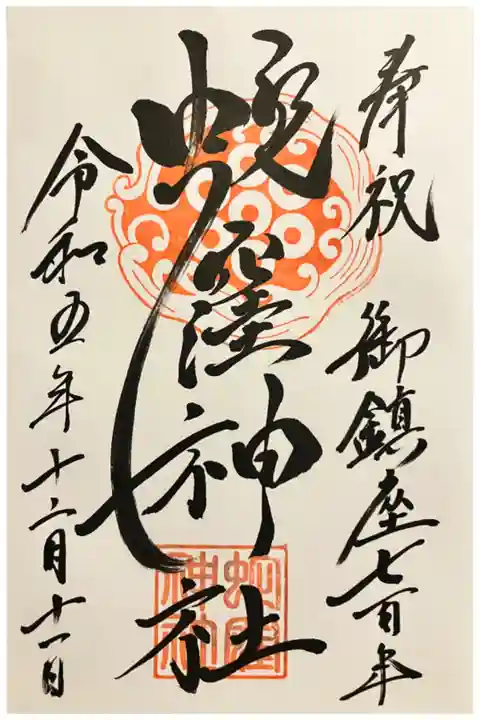 奉祝
御鎮座七百年
蛇窪神社
令和五年十二月十一日
蛇窪
神社